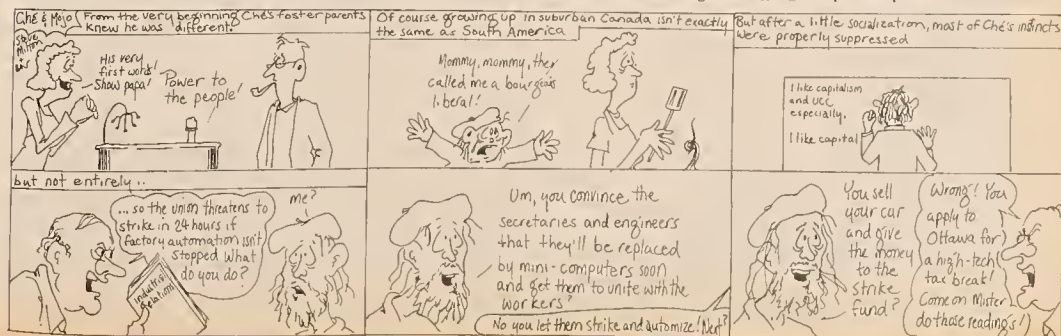 Ché & Mojo
From the very beginning Ché's foster parents
knew he was different.
Steve
Milton
His very
first words!
Show papa!
Power to
the people!
Of course growing up in suburban Canada isn't exactly
the same as South America
Mommy, mommy, they
called me a bourgeois
liberal!
But after a little socialization, most of Ché's instincts
were properly suppressed
I like capitalism
and UCC
especially.
I like capital
but not entirely..
... so the union threatens to
strike in 24 hours if
factory automation isn't
stopped what
do you do?
Industrial
Relations
me?
Um, you convince the
secretaries and engineers
that they'll be replaced
by mini-computers soon
and get them to unite with the
workers?
No you let them strike and automize! Next?
You sell
your car
and give
the money
to the
strike
fund?
Wrong! You
apply to
Ottawa for
a high-tech
tax break!
Come on Mister
do those readings!